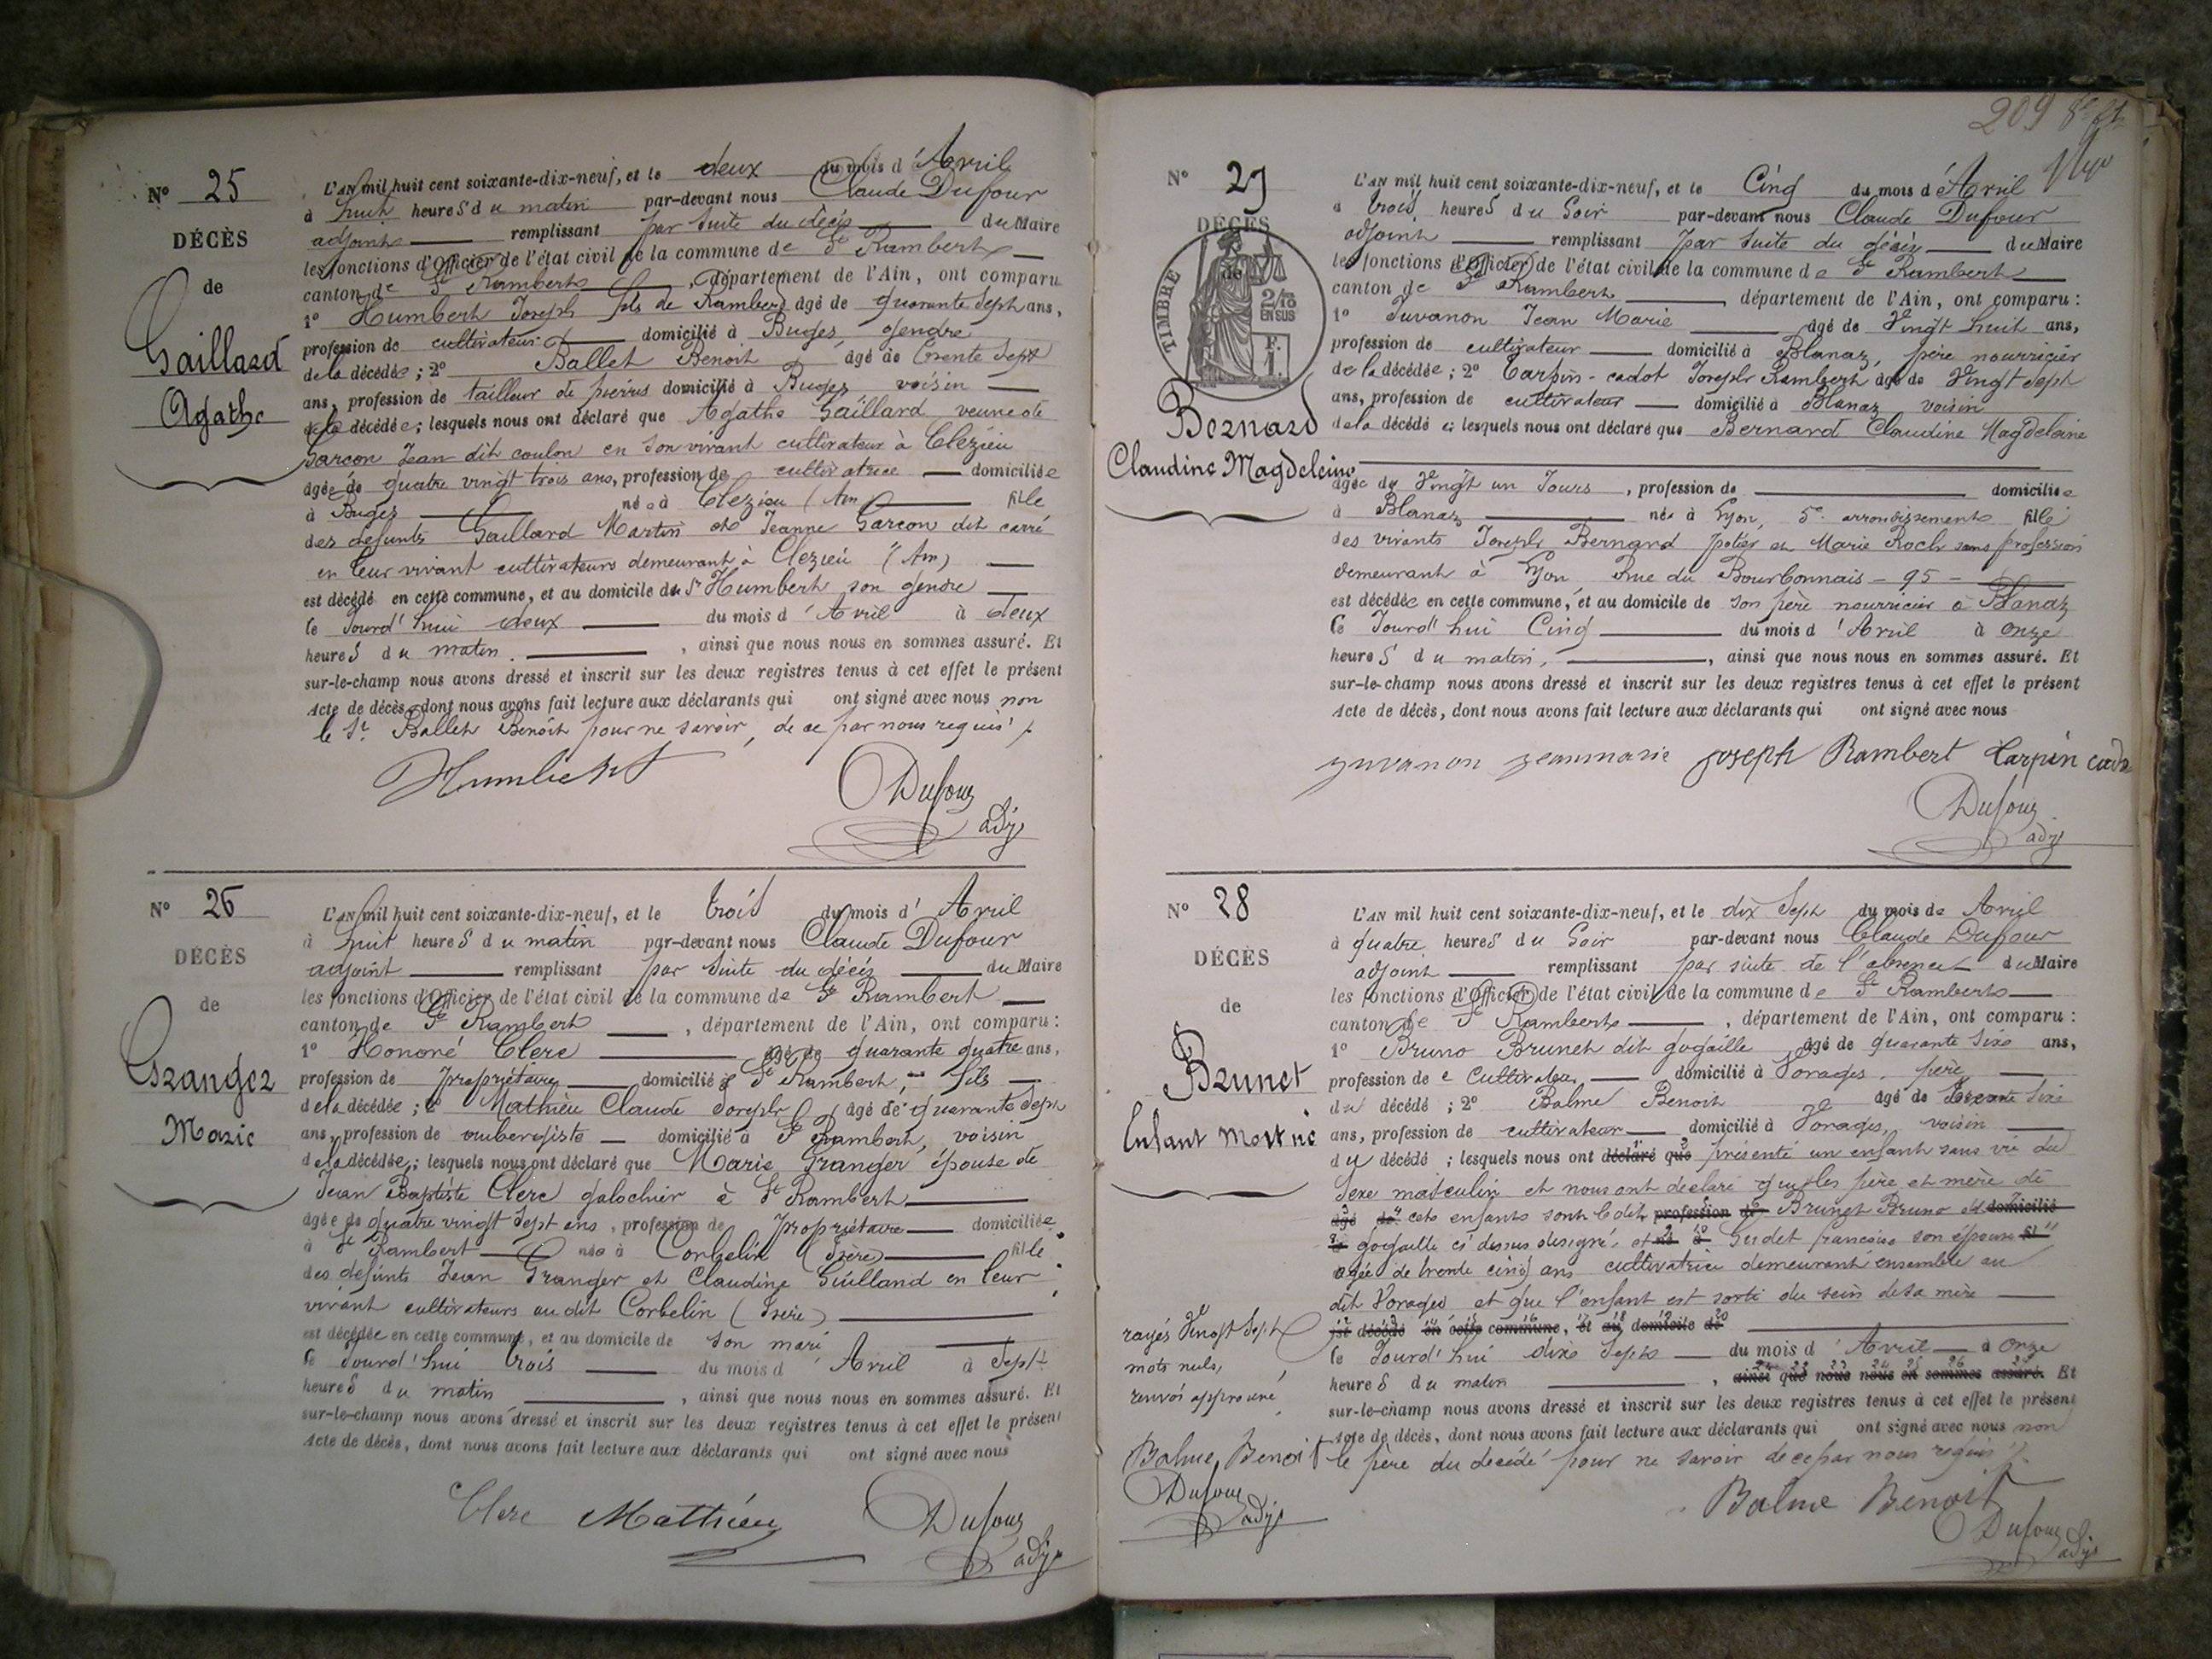 N° 25
DÉCÈS
de
Gaillard
Agathe
L'AN mil huit cent soixante-dix-neuf, et le deux du mois d'Avril
à huit heures du matin par-devant nous Claude Dufour
adjoint remplissant par suite du décès du Maire
les fonctions d'Officier de l'état civil de la commune de St Rambert
canton de St Rambert, département de l'Ain, ont comparu
1° Humbert Joseph fils de Rambert âgé de quarante sept ans,
profession de cultivateur domicilié à Buges gendre
de la décédée; 2° Ballet Benoit âgé de trente sept
ans, profession de tailleur de pierres domicilié à Buges, voisin
de la décédée; lesquels nous ont déclaré que Agathe Gaillard veuve de
Garcon Jean dit coulon en son vivant cultivateur à Clezieu
âgée de quatre vingt trois ans, profession de cultivatrice domiciliée
à Buges née à Clezieu (Ain) fille
des defunts Gaillard Martin et Jeanne Garcon dit carré
en leur vivant cultivateurs demeurant à Clezieu (Ain)
est décédé en cette commune, et au domicile du Sr Humbert son gendre
le Jourd'hui deux du mois d'Avril à deux
heures du matin, ainsi que nous nous en sommes assuré. Et
sur-le-champ nous avons dressé et inscrit sur les deux registres tenus à cet effet le présent
Acte de décès, dont nous avons fait lecture aux déclarants qui ont signé avec nous non
le Sr Ballet Benoit pour ne savoir, de ce par nous requis
Humbert Dufour
adj
N° 26
DÉCÈS
de
Granger
Marie
L'AN mil huit cent soixante-dix-neuf, et le trois du mois d'Avril
à huit heures du matin par-devant nous Claude Dufour
adjoint remplissant par suite du décès du Maire
les fonctions d'Officier de l'état civil de la commune de St Rambert
canton de St Rambert, département de l'Ain, ont comparu:
1° Honoré Clerc âgé de quarante quatre ans,
profession de propriétaire domicilié à St Rambert, fils
de la décédée; 2° Mathieu Claude Joseph âgé de quarante sept
ans, profession de aubergiste domicilié à St Rambert, voisin
de la décédée; lesquels nous ont déclaré que Marie Granger épouse de
Jean Baptiste Clerc galochier à St Rambert
âgée de quatre vingt sept ans, profession de propriétaire domiciliée
à St Rambert née à Corbelin (Isère) fille
des defunts Jean Granger et Claudine Guilland en leur
vivant cultivateurs au dit Corbelin (Isère)
est décédée en cette commune, et au domicile de son mari
le Jourd'hui trois du mois d'Avril à sept
heures du matin, ainsi que nous nous en sommes assuré. Et
sur-le-champ nous avons dressé et inscrit sur les deux registres tenus à cet effet le présent
Acte de décès, dont nous avons fait lecture aux déclarants qui ont signé avec nous
Clerc Mathieu Dufour
adj
209
N° 27
DÉCÈS
de
TIMBRE
2/10
EN SUS
F.
1.
Bernard
Claudine Magdeleine
L'AN mil huit cent soixante-dix-neuf, et le Cinq du mois d'Avril
à trois heures du Soir par-devant nous Claude Dufour
adjoint remplissant par suite du décès du Maire
les fonctions d'Officier de l'état civil de la commune de St Rambert
canton de St Rambert, département de l'Ain, ont comparu:
1° Juvanon Jean Marie âgé de Vingt huit ans,
profession de cultivateur domicilié à Blanaz, père nourricier
de la décédée; 2° Carpin-cadot Joseph Rambert âgé de Vingt sept
ans, profession de cultivateur domicilié à Blanaz voisin
de la décédée; lesquels nous ont déclaré que Bernard Claudine Magdeleine
âgée de Vingt un Jours, profession de domiciliée
à Blanaz née à Lyon, 5e arrondissement fille
des vivants Joseph Bernard potier et Marie Roch sans profession
demeurant à Lyon Rue du Bourbonnais - 95 -
est décédée en cette commune, et au domicile de son père nourricier à Blanaz
le Jourd'hui Cinq du mois d'Avril à onze
heures du matin, ainsi que nous nous en sommes assuré. Et
sur-le-champ nous avons dressé et inscrit sur les deux registres tenus à cet effet le présent
Acte de décès, dont nous avons fait lecture aux déclarants qui ont signé avec nous
juvanon jeanmarie joseph Rambert Carpin cado
Dufour
adj
N° 28
DÉCÈS
de
Brunet
Enfant mort né
L'AN mil huit cent soixante-dix-neuf, et le dix sept du mois de Avril
à quatre heures du Soir par-devant nous Claude Dufour
adjoint remplissant par suite de l'absence du Maire
les fonctions d'Officier de l'état civil de la commune de St Rambert
canton de St Rambert, département de l'Ain, ont comparu:
1° Bruno Brunet dit gogaille âgé de quarante six ans,
profession de cultivateur domicilié à Vorages, père
du décédé; 2° Balme Benoit âgé de trente six
ans, profession de cultivateur domicilié à Vorages, voisin
du décédé; lesquels nous ont déclaré que présenté un enfant sans vie du
sexe masculin et nous ont declaré que les père et mère de
âgé de cet enfant sont ledit profession de Brunet Bruno dit domicilié
à gogaille ci dessus designé, et né à Gudet francoise son épouse fi
agée de trente cinq ans cultivatrice demeurant ensemble au
dit Vorages et que l'enfant est sorti du sein de sa mère
est décédé en cette commune, et au domicile de
le Jourd'hui dix sept du mois d'Avril à onze
heures du matin, ainsi que nous nous en sommes assuré. Et
sur-le-champ nous avons dressé et inscrit sur les deux registres tenus à cet effet le présent
Acte de décès, dont nous avons fait lecture aux déclarants qui ont signé avec nous non
le père du decédé pour ne savoir de ce par nous requis
Balme Benoit
Dufour
adj
rayés Vingt sept
mots nuls,
renvoi approuvé
Balme Benoit
Dufour
adj